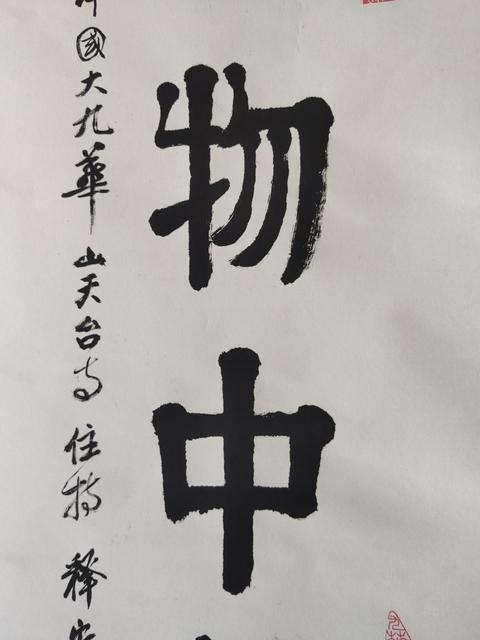 物中
國大九華山天台寺住持釋